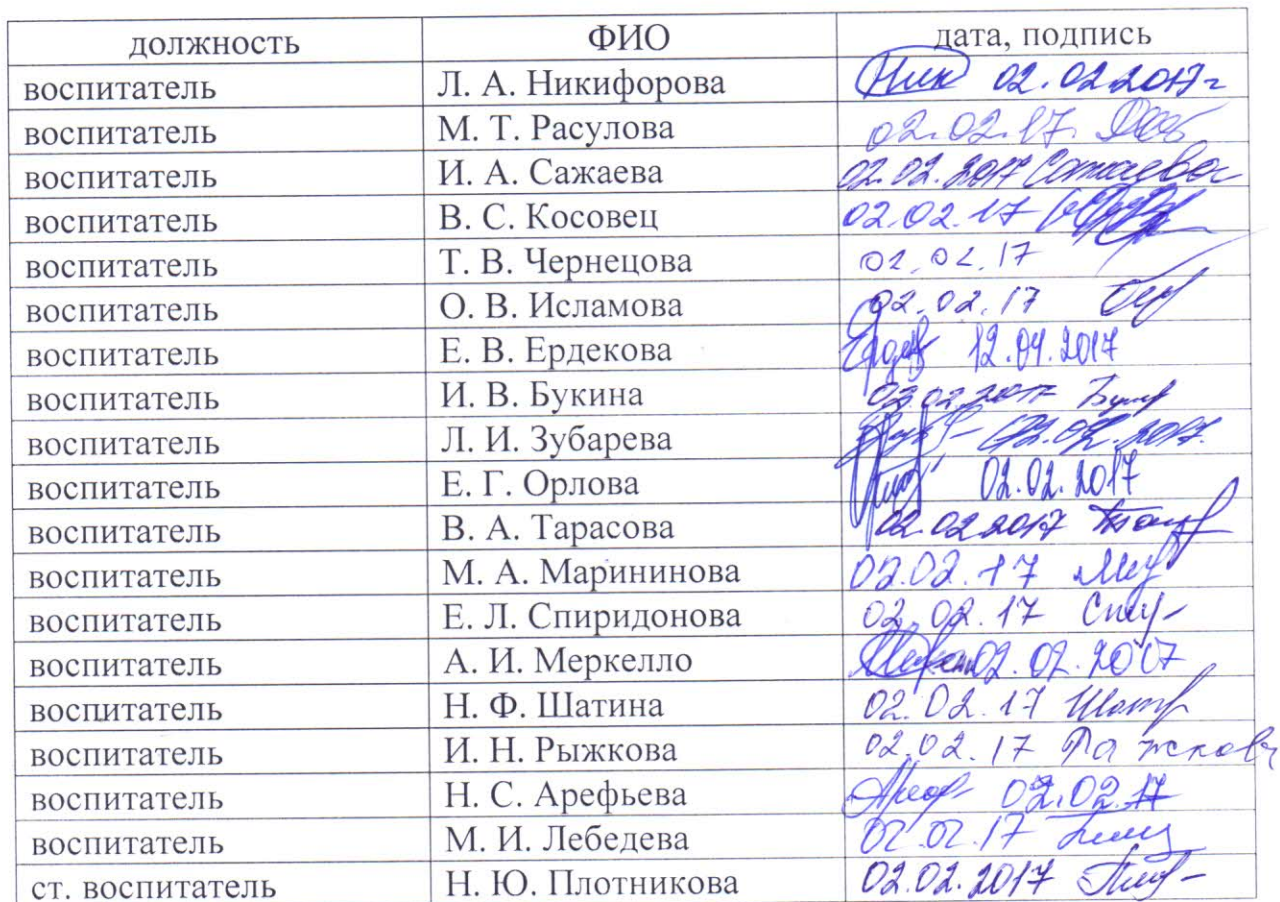 должность ФИО дата, подпись
воспитатель Л. А. Никифорова 02.02.2017г
воспитатель М. Т. Расулова 02.02.17.
воспитатель И. А. Сажаева 02.02.2017 Сажаева
воспитатель В. С. Косовец 02.02.17
воспитатель Т. В. Чернецова 02.02.17
воспитатель О. В. Исламова 02.02.17
воспитатель Е. В. Ердекова 12.04.2017
воспитатель И. В. Букина 02.02.2017
воспитатель Л. И. Зубарева 02.02.2017.
воспитатель Е. Г. Орлова 02.02.2017
воспитатель В. А. Тарасова 02.02.2017
воспитатель М. А. Марининова 02.02.17
воспитатель Е. Л. Спиридонова 02.02.17
воспитатель А. И. Меркелло 02.02.2017
воспитатель Н. Ф. Шатина 02.02.17
воспитатель И. Н. Рыжкова 02.02.17
воспитатель Н. С. Арефьева 02.02.17
воспитатель М. И. Лебедева 02.02.17
ст. воспитатель Н. Ю. Плотникова 02.02.2017